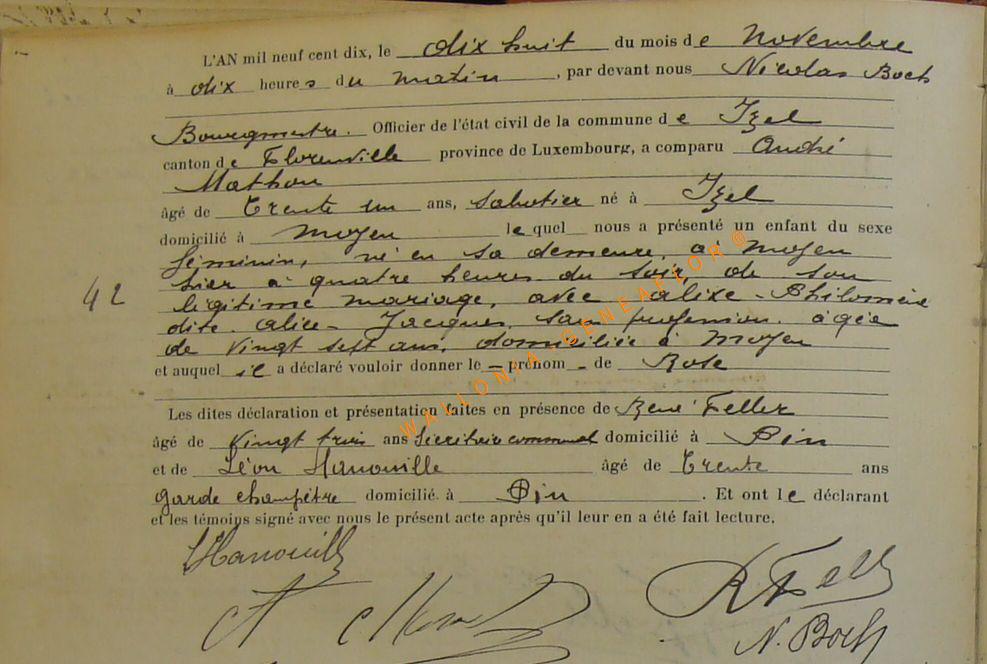 L'AN mil neuf cent dix, le dix huit du mois de Novembre
à dix heures du matin, par devant nous Nicolas Boch
Bourgmestre. Officier de l'état civil de la commune de Izel
canton de Florenville province de Luxembourg, a comparu André
Mathon
âgé de Trente un ans, Sabotier né à Izel
domicilié à Moyen lequel nous a présenté un enfant du sexe
féminin, né en sa demeure, à Moyen
hier à quatre heures du soir, de son
42
légitime mariage, avec Alixe-Philomène
dite Alice- Jacques, sans profession, âgée
de vingt sept ans, domiciliée à Moyen
et auquel il a déclaré vouloir donner le - prénom - de Rose
Les dites déclaration et présentation faites en présence de René Feller
âgé de vingt trois ans Secrétaire communal domicilié à Pin
et de Léon Hanouille âgé de Trente ans
garde champêtre domicilié à Pin. Et ont le déclarant
et les témoins signé avec nous le présent acte après qu'il leur en a été fait lecture.
LHanouille
R Feller
N. Boch
WALLONIA-GENEAFLOR@